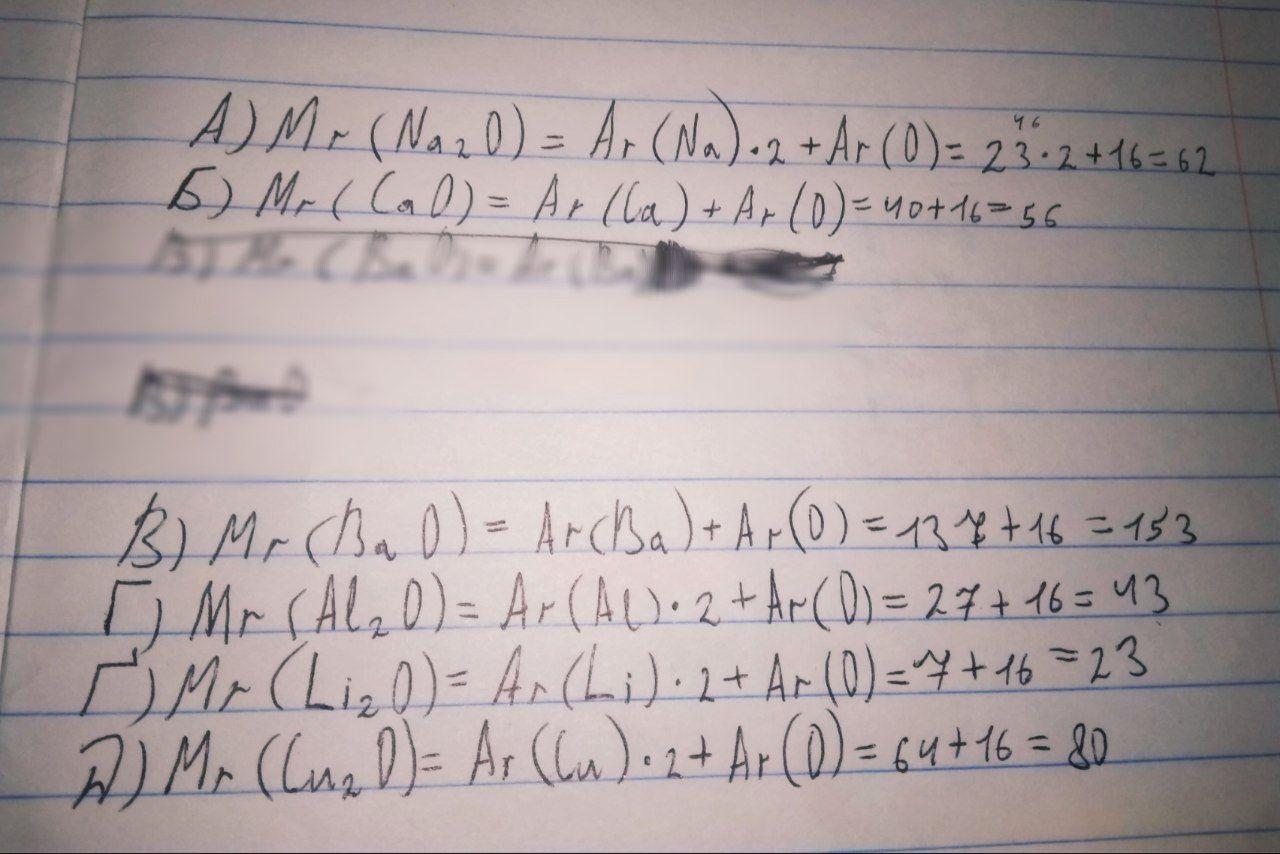 А) Mr (Na₂O) = Ar (Na) · 2 + Ar (O) = 23 · 2 + 16 = 62
46
Б) Mr (CaO) = Ar (Ca) + Ar (O) = 40 + 16 = 56
В) Mr (BaO) = Ar (Ba)
В) BaO
В) Mr (BaO) = Ar (Ba) + Ar (O) = 137 + 16 = 153
Г) Mr (Al₂O) = Ar (Al) · 2 + Ar (O) = 27 + 16 = 43
Г) Mr (Li₂O) = Ar (Li) · 2 + Ar (O) = 7 + 16 = 23
Д) Mr (Cu₂O) = Ar (Cu) · 2 + Ar (O) = 64 + 16 = 80